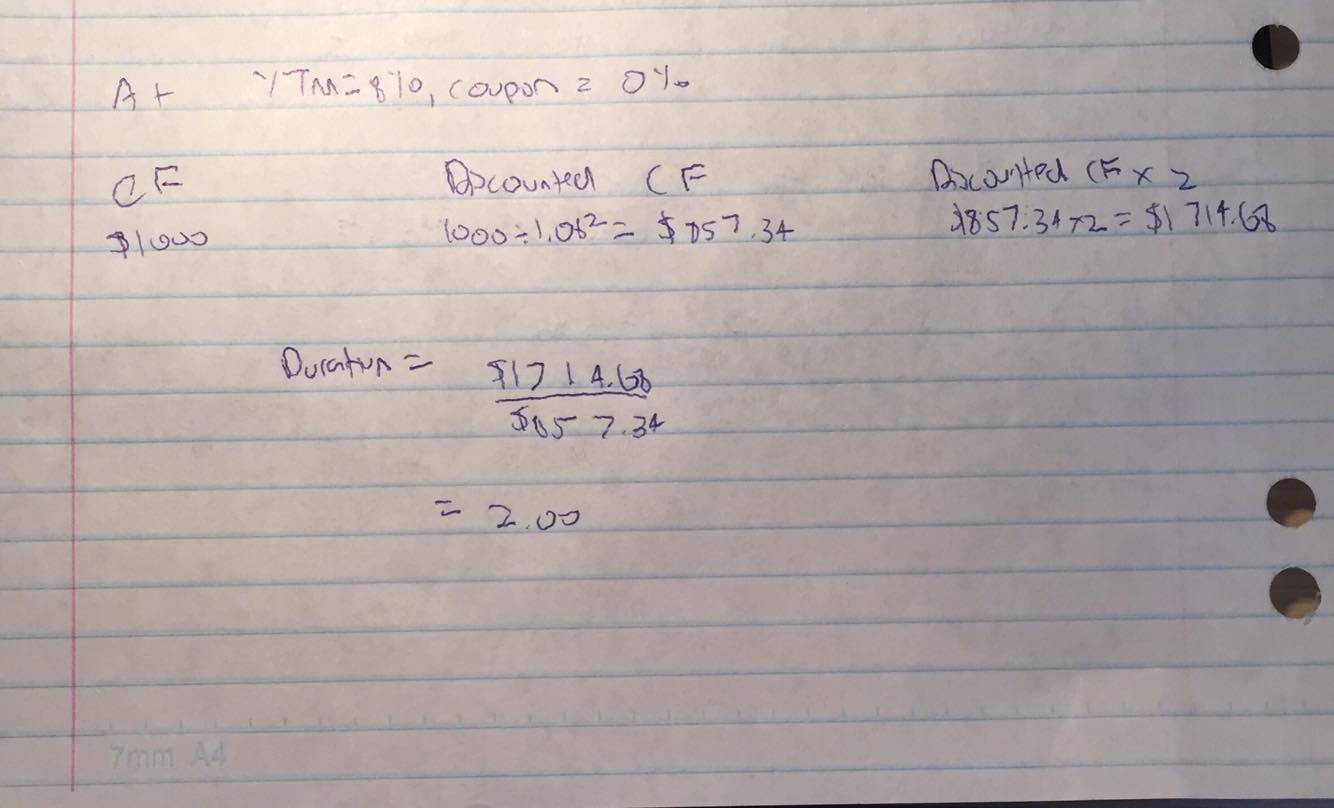 At YTM=8%, coupon = 0%
CF Discounted CF Discounted CF x 2
$1000 1000÷1.08²= $857.34 $857.34x2=$1714.68
Duration = $1714.68
$857.34
= 2.00
7mm A4